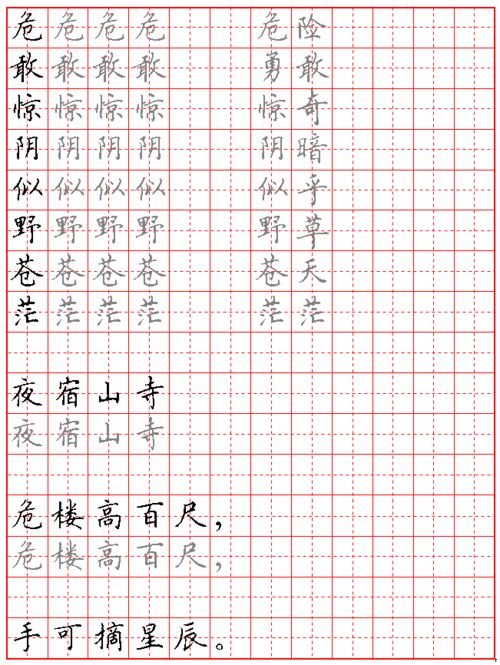 危危危危 危险
敢敢敢敢 勇敢
惊惊惊惊 惊奇
阴阴阴阴 阴暗
似似似似 似乎
野野野野 野草
苍苍苍苍 苍天
茫茫茫茫 茫茫
夜宿山寺
夜宿山寺
危楼高百尺，
危楼高百尺，
手可摘星辰。